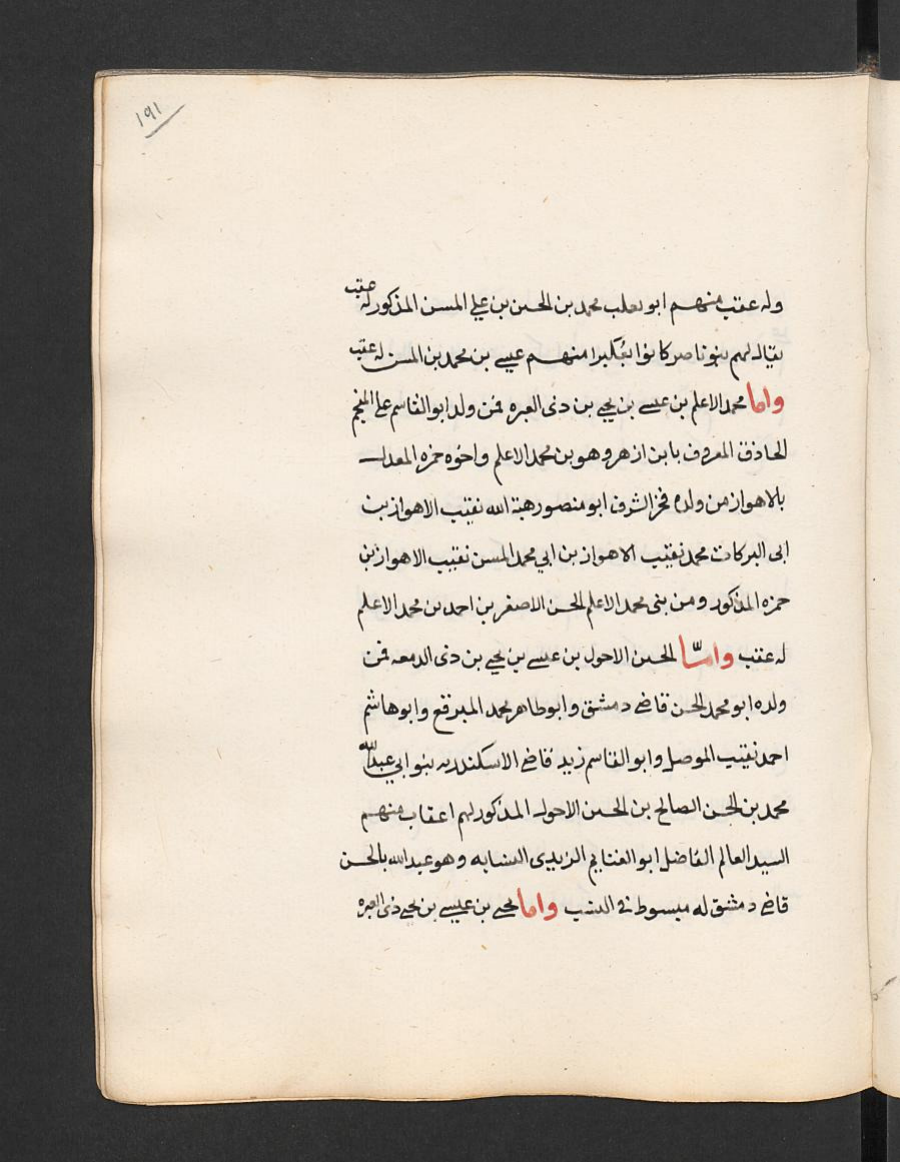 ١٩١
وله عقب منهم ابو محمد بن الحسن بن علي الحسن المذكور له عقب
يقال لهم بنو ناصر كانوا بعكبرا منهم عيسى بن محمد بن الحسن له عقب
واما محمد الاعلم بن عيسى بن يحيى بن ذى العبره فمن ولد ابو القاسم على المنجم
الحاذق المعروف بابن ازهر وهو بن محمد الاعلم واخوه حمزه المعدل
بالاهواز من ولده فخر الشرف ابو منصور هبة الله نقيب الاهواز بن
ابى البركات محمد نقيب الاهواز بن ابي محمد الحسن نقيب الاهواز بن
حمزه المذكور ومن بنى محمد الاعلم الحسن الاصغر بن احمد بن محمد الاعلم
له عقب وامّا الحسين الاحول بن عيسى بن يحيى بن ذى الدمعه فمن
ولده ابو محمد الحسن قاضى دمشق وابو طاهر محمد المبرقع وابو هاشم
احمد نقيب الموصل وابو القاسم زيد قاضى الاسكندريه بنو ابي عبدالله
محمد بن الحسن الصالح بن الحسين الاحول المذكور لهم اعقاب منهم
السيد العالم الفاضل ابو الغنايم الزيدى النسابه وهو عبدالله بالحسن
قاضى دمشق له مبسوط فى النسب واما يحيى بن عيسى بن يحيى ذى العبره